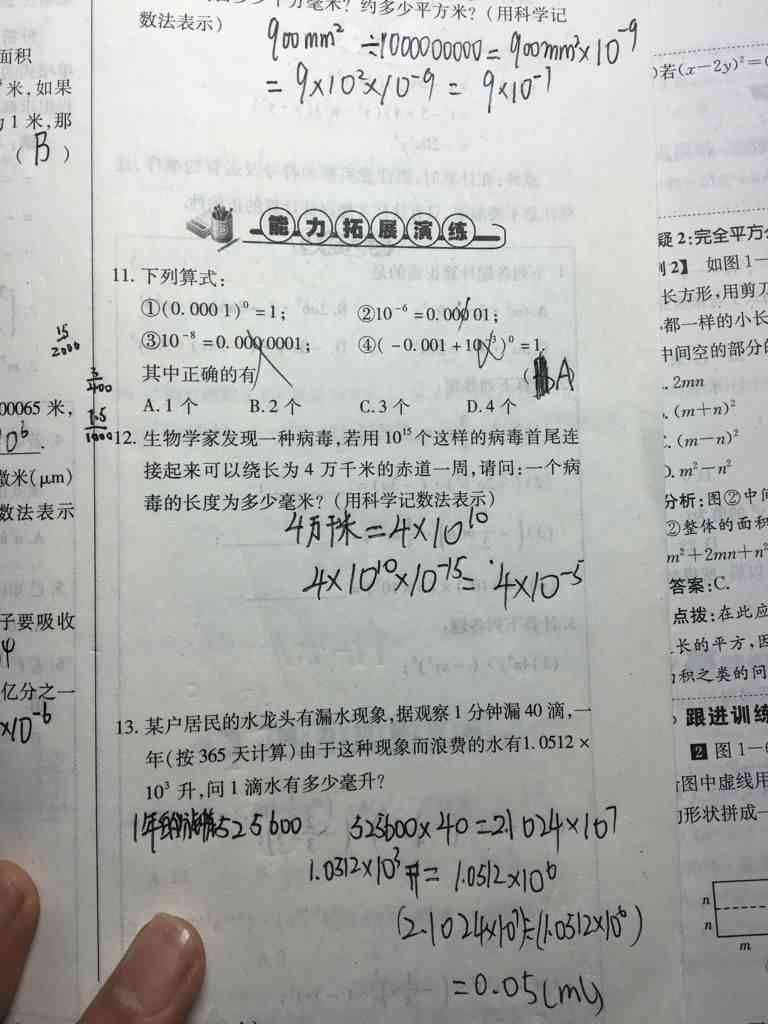 面积
米,如果
1 米,那
( B )
15
2000
3
200
1.5
1000
00065 米,
10⁶.
微米(μm)
数法表示
子要吸收
亿分之一
×10⁻⁶
数法表示)
900mm² ÷1000000000=900mm²×10⁻⁹
=9×10²×10⁻⁹= 9×10⁻⁷
能力拓展演练
11. 下列算式:
①(0.000 1)⁰=1; ②10⁻⁶=0.000 01;
③10⁻⁸=0.000 0001; ④(-0.001+10⁻³)⁰=1.
其中正确的有 ( A )
A.1 个 B.2 个 C.3 个 D.4 个
12. 生物学家发现一种病毒,若用 10¹⁵ 个这样的病毒首尾连
接起来可以绕长为 4 万千米的赤道一周,请问:一个病
毒的长度为多少毫米?(用科学记数法表示)
4万千米=4×10¹⁰
4×10¹⁰×10⁻¹⁵=4×10⁻⁵
13. 某户居民的水龙头有漏水现象,据观察 1 分钟漏 40 滴,一
年(按 365 天计算)由于这种现象而浪费的水有1.0512×
10³ 升,问 1 滴水有多少毫升?
525600 525600×40=2.1024×10⁷
1.0512×10³升=1.0512×10⁶
(2.1024×10⁷)÷(1.0512×10⁶)
=0.05(mL)
)若(x-2y)²=
疑 2:完全平方
2】 如图 1-
长方形,用剪刀
都一样的小长
中间空的部分的
.2mn
.(m+n)²
.(m-n)²
D.m²-n²
分析:图②中间
②整体的面积
m²+2mn+n²
答案:C.
点拨:在此应
长的平方,因
积之类的问
跟进训练
2 图 1-
图中虚线用
形状拼成一
n
n
m